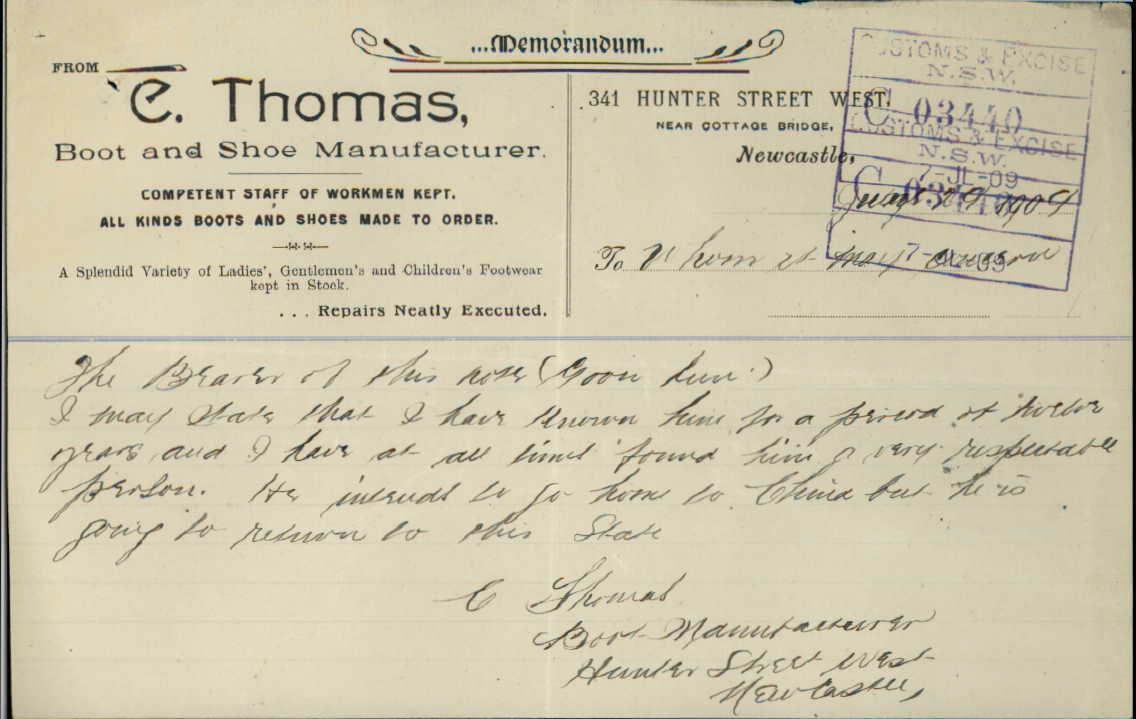 ...Memorandum...
FROM
C. Thomas,
Boot and Shoe Manufacturer.
COMPETENT STAFF OF WORKMEN KEPT.
ALL KINDS BOOTS AND SHOES MADE TO ORDER.
A Splendid Variety of Ladies', Gentlemen's and Children's Footwear
kept in Stock.
... Repairs Neatly Executed.
341 HUNTER STREET WEST,
NEAR COTTAGE BRIDGE,
Newcastle,
1909
To Whom it may Concern
CUSTOMS & EXCISE
N.S.W.
C 03440
CUSTOMS & EXCISE
N.S.W.
7-JL-09
C 03440
7-JL-09
The Bearer of this note (Goon Lun.)
I may state that I have known him for a period of twelve
years and I have at all times found him a very respectable
person. He intends to go home to China but he is
going to return to this State
C Thomas
Boot Manufacturer
Hunter Street West
Newcastle,